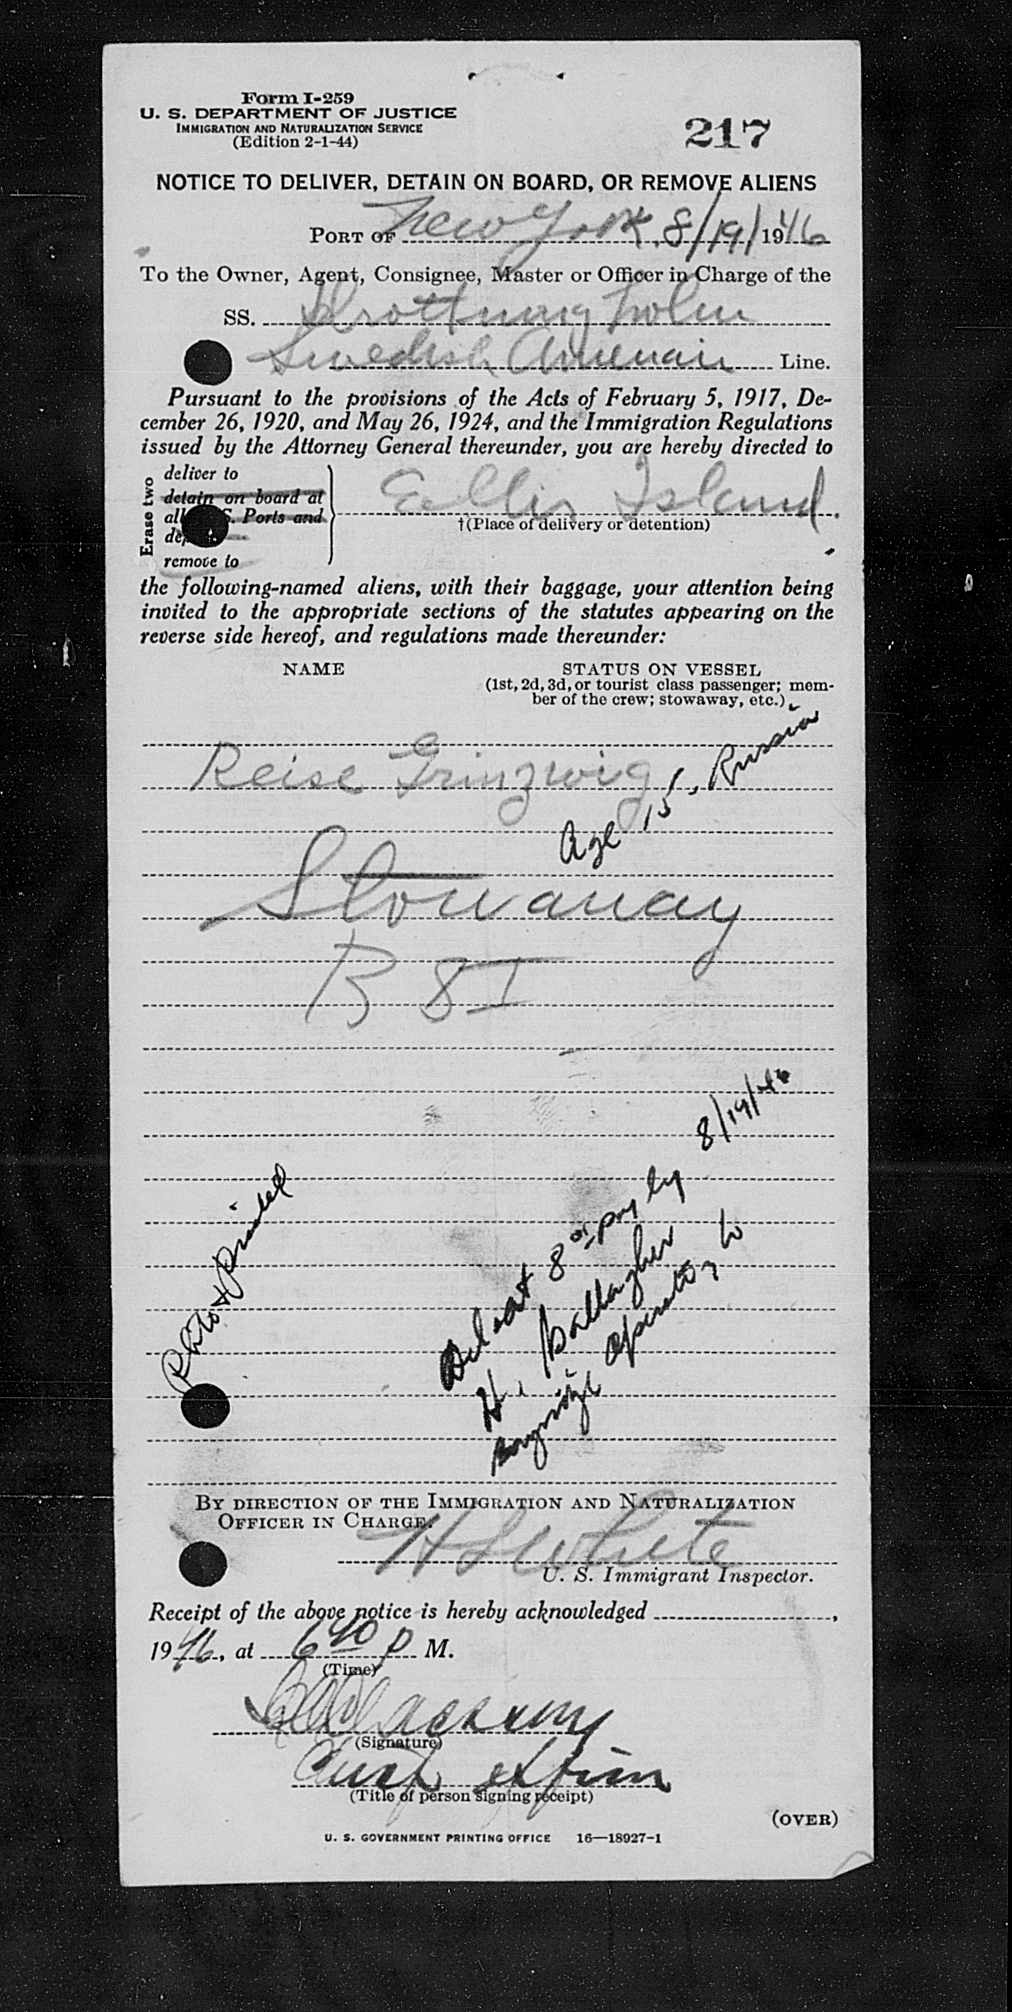 Form I-259
U. S. DEPARTMENT OF JUSTICE
IMMIGRATION AND NATURALIZATION SERVICE
(Edition 2-1-44)
217
NOTICE TO DELIVER, DETAIN ON BOARD, OR REMOVE ALIENS
PORT OF New York, 8/19/1946
To the Owner, Agent, Consignee, Master or Officer in Charge of the
SS. Drottningholm
Swedish American Line.
Pursuant to the provisions of the Acts of February 5, 1917, De-
cember 26, 1920, and May 26, 1924, and the Immigration Regulations
issued by the Attorney General thereunder, you are hereby directed to
Erase two
deliver to
detain on board at
all S. Ports and
remove to
Ellis Island.
†(Place of delivery or detention)
the following-named aliens, with their baggage, your attention being
invited to the appropriate sections of the statutes appearing on the
reverse side hereof, and regulations made thereunder:
NAME
STATUS ON VESSEL
(1st, 2d, 3d, or tourist class passenger; mem-
ber of the crew; stowaway, etc.)
Reise Grinzwig
Age 15, Russia
Stowaway
B S I
Photo & printed
Del at 8 pm by 8/19/46
H. Gallagher
BY DIRECTION OF THE IMMIGRATION AND NATURALIZATION
OFFICER IN CHARGE.
H S White
U. S. Immigrant Inspector.
Receipt of the above notice is hereby acknowledged
1946, at 6 40 P M.
(Time)
(Signature)
(Title of person signing receipt)
(OVER)
U. S. GOVERNMENT PRINTING OFFICE 16—18927-1